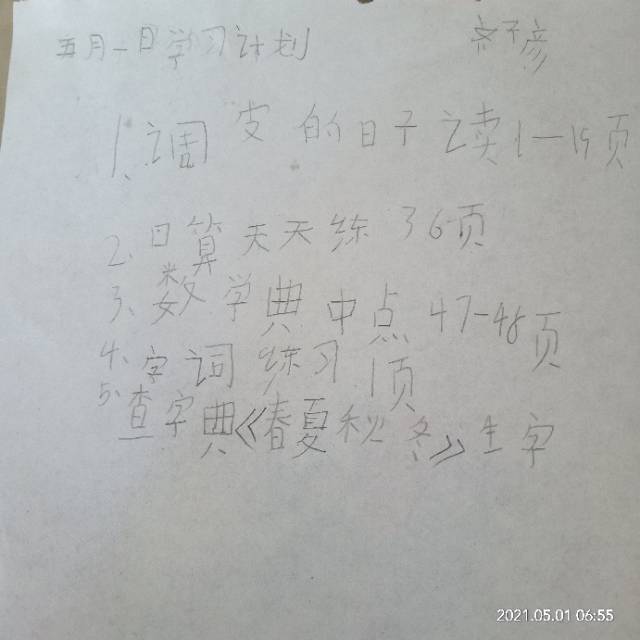 五月一日学习计划 齐不彦
1、调皮的日子读1—19页
2、口算天天练36页
3、数学典中点47-48页
4、字词练习1页
5、查字典《春夏秋冬》生字
2021.05.01 06:55